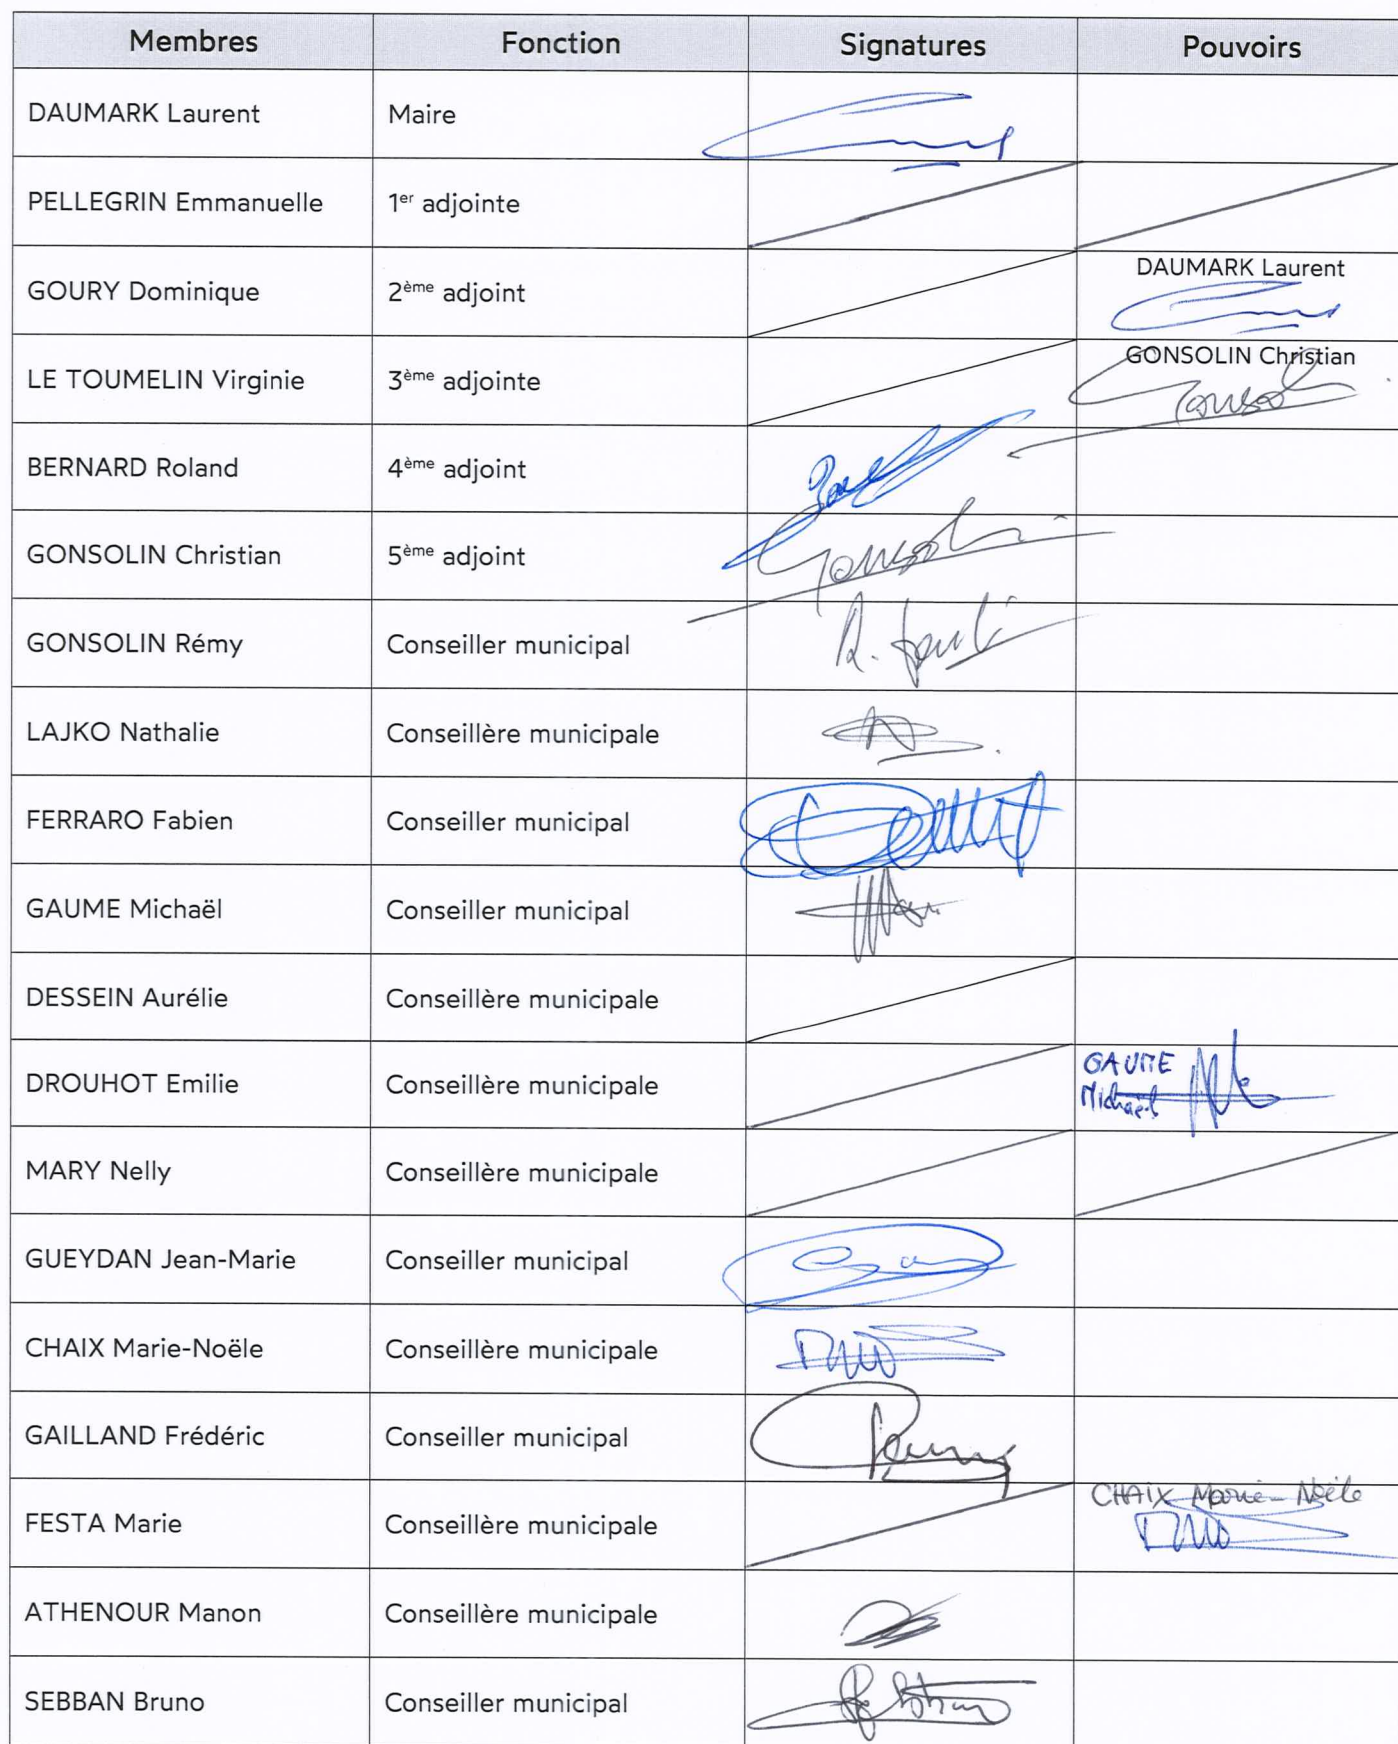 Membres Fonction Signatures Pouvoirs
DAUMARK Laurent Maire
PELLEGRIN Emmanuelle 1er adjointe
GOURY Dominique 2ème adjoint DAUMARK Laurent
LE TOUMELIN Virginie 3ème adjointe GONSOLIN Christian
BERNARD Roland 4ème adjoint
GONSOLIN Christian 5ème adjoint
GONSOLIN Rémy Conseiller municipal
LAJKO Nathalie Conseillère municipale
FERRARO Fabien Conseiller municipal
GAUME Michaël Conseiller municipal
DESSEIN Aurélie Conseillère municipale
DROUHOT Emilie Conseillère municipale GAUME
Michaël
MARY Nelly Conseillère municipale
GUEYDAN Jean-Marie Conseiller municipal
CHAIX Marie-Noëlle Conseillère municipale
GAILLAND Frédéric Conseiller municipal
FESTA Marie Conseillère municipale CHAIX Marie-Noëlle
ATHENOUR Manon Conseillère municipale
SEBBAN Bruno Conseiller municipal